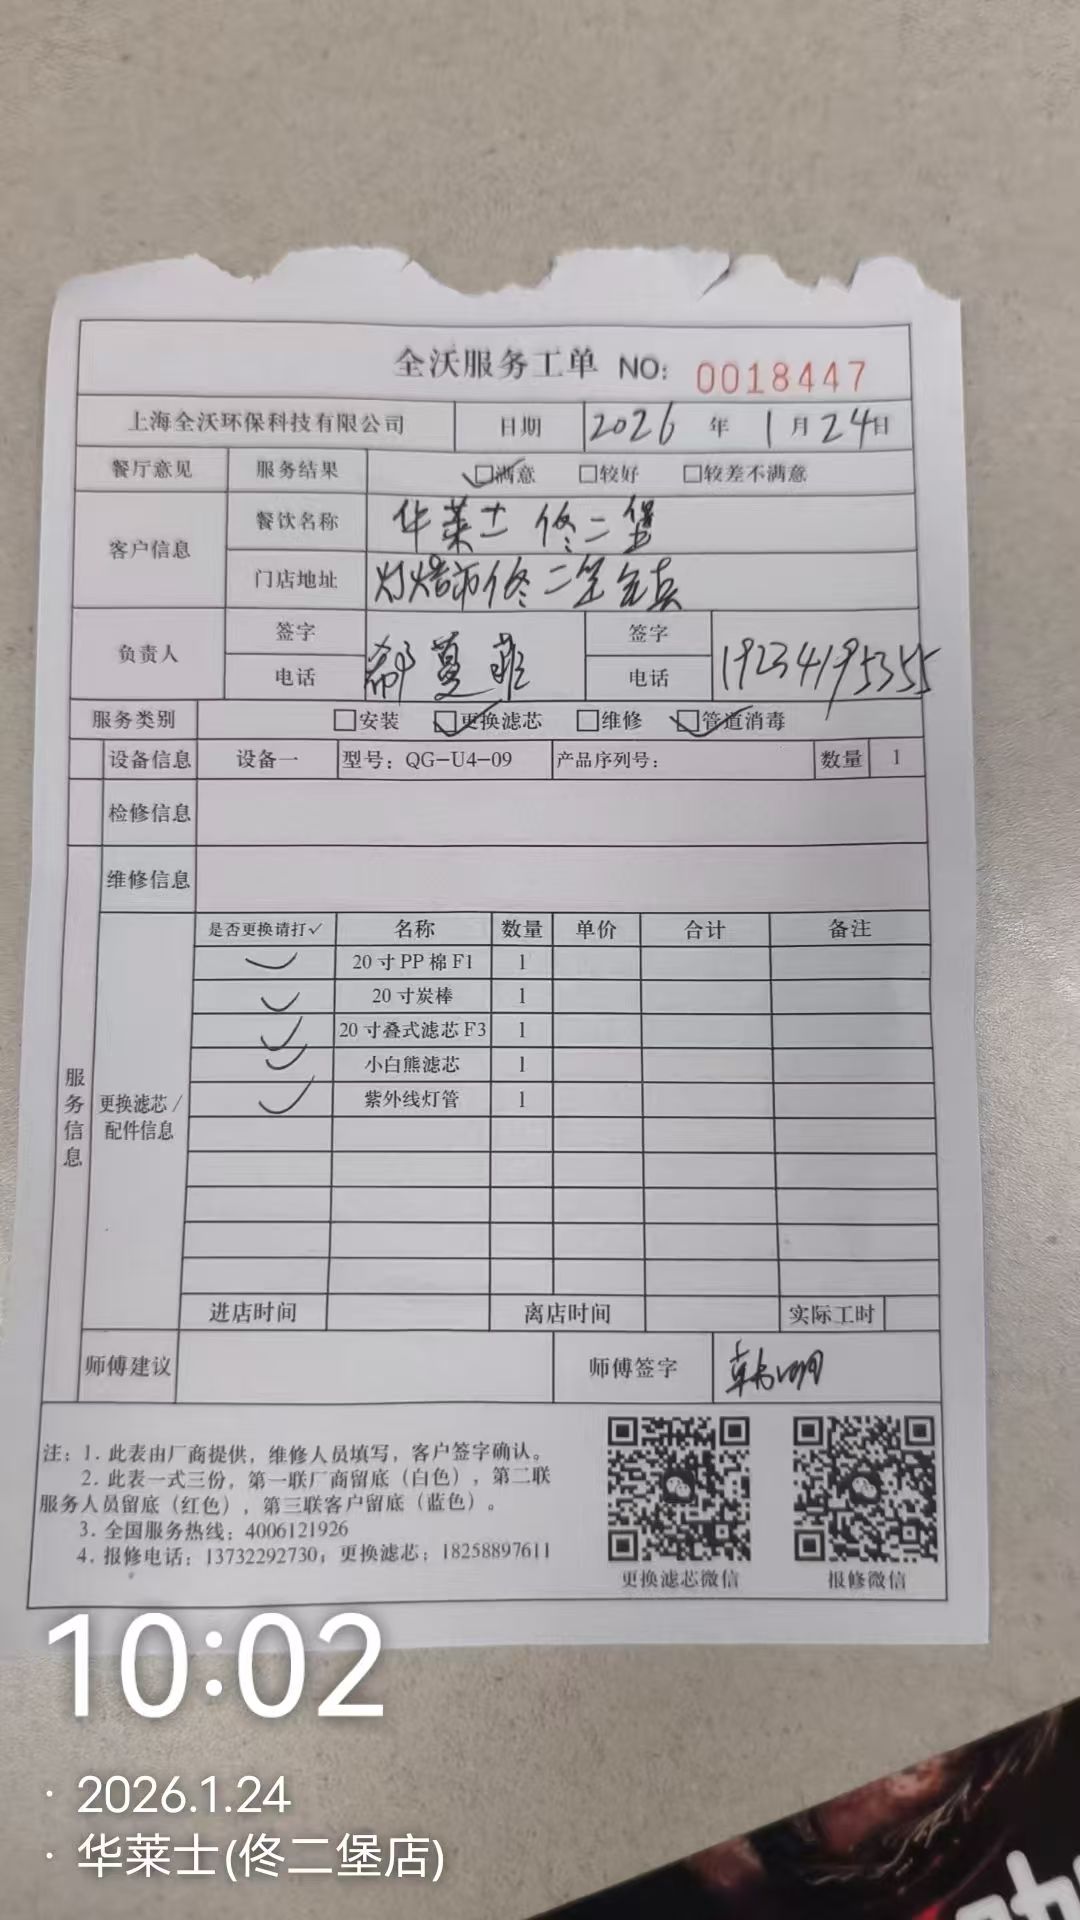 全沃服务工单 NO: 0018447
上海全沃环保科技有限公司 日期 2026 年 1 月 24 日
餐厅意见 服务结果 ✓□满意 □较好 □较差不满意
客户信息 餐饮名称 华莱士 佟二堡
门店地址 灯塔市佟二堡
负责人 签字 签字
电话 郝蔓菲 电话 19234195355
服务类别 □安装 ✓□更换滤芯 □维修 ✓□管道消毒
设备信息 设备一 型号：QG-U4-09 产品序列号： 数量 1
检修信息
维修信息
是否更换请打✓ 名称 数量 单价 合计 备注
✓ 20寸PP棉F1 1
✓ 20寸炭棒 1
✓ 20寸叠式滤芯F3 1
✓ 小白熊滤芯 1
✓ 紫外线灯管 1
服务信息
更换滤芯/
配件信息
进店时间 离店时间 实际工时
师傅建议 师傅签字 韩明
注：1. 此表由厂商提供，维修人员填写，客户签字确认。
2. 此表一式三份，第一联厂商留底（白色），第二联
服务人员留底（红色），第三联客户留底（蓝色）。
3. 全国服务热线：4006121926
4. 报修电话：13732292730；更换滤芯：18258897611
更换滤芯微信 报修微信
10:02
· 2026.1.24
· 华莱士(佟二堡店)